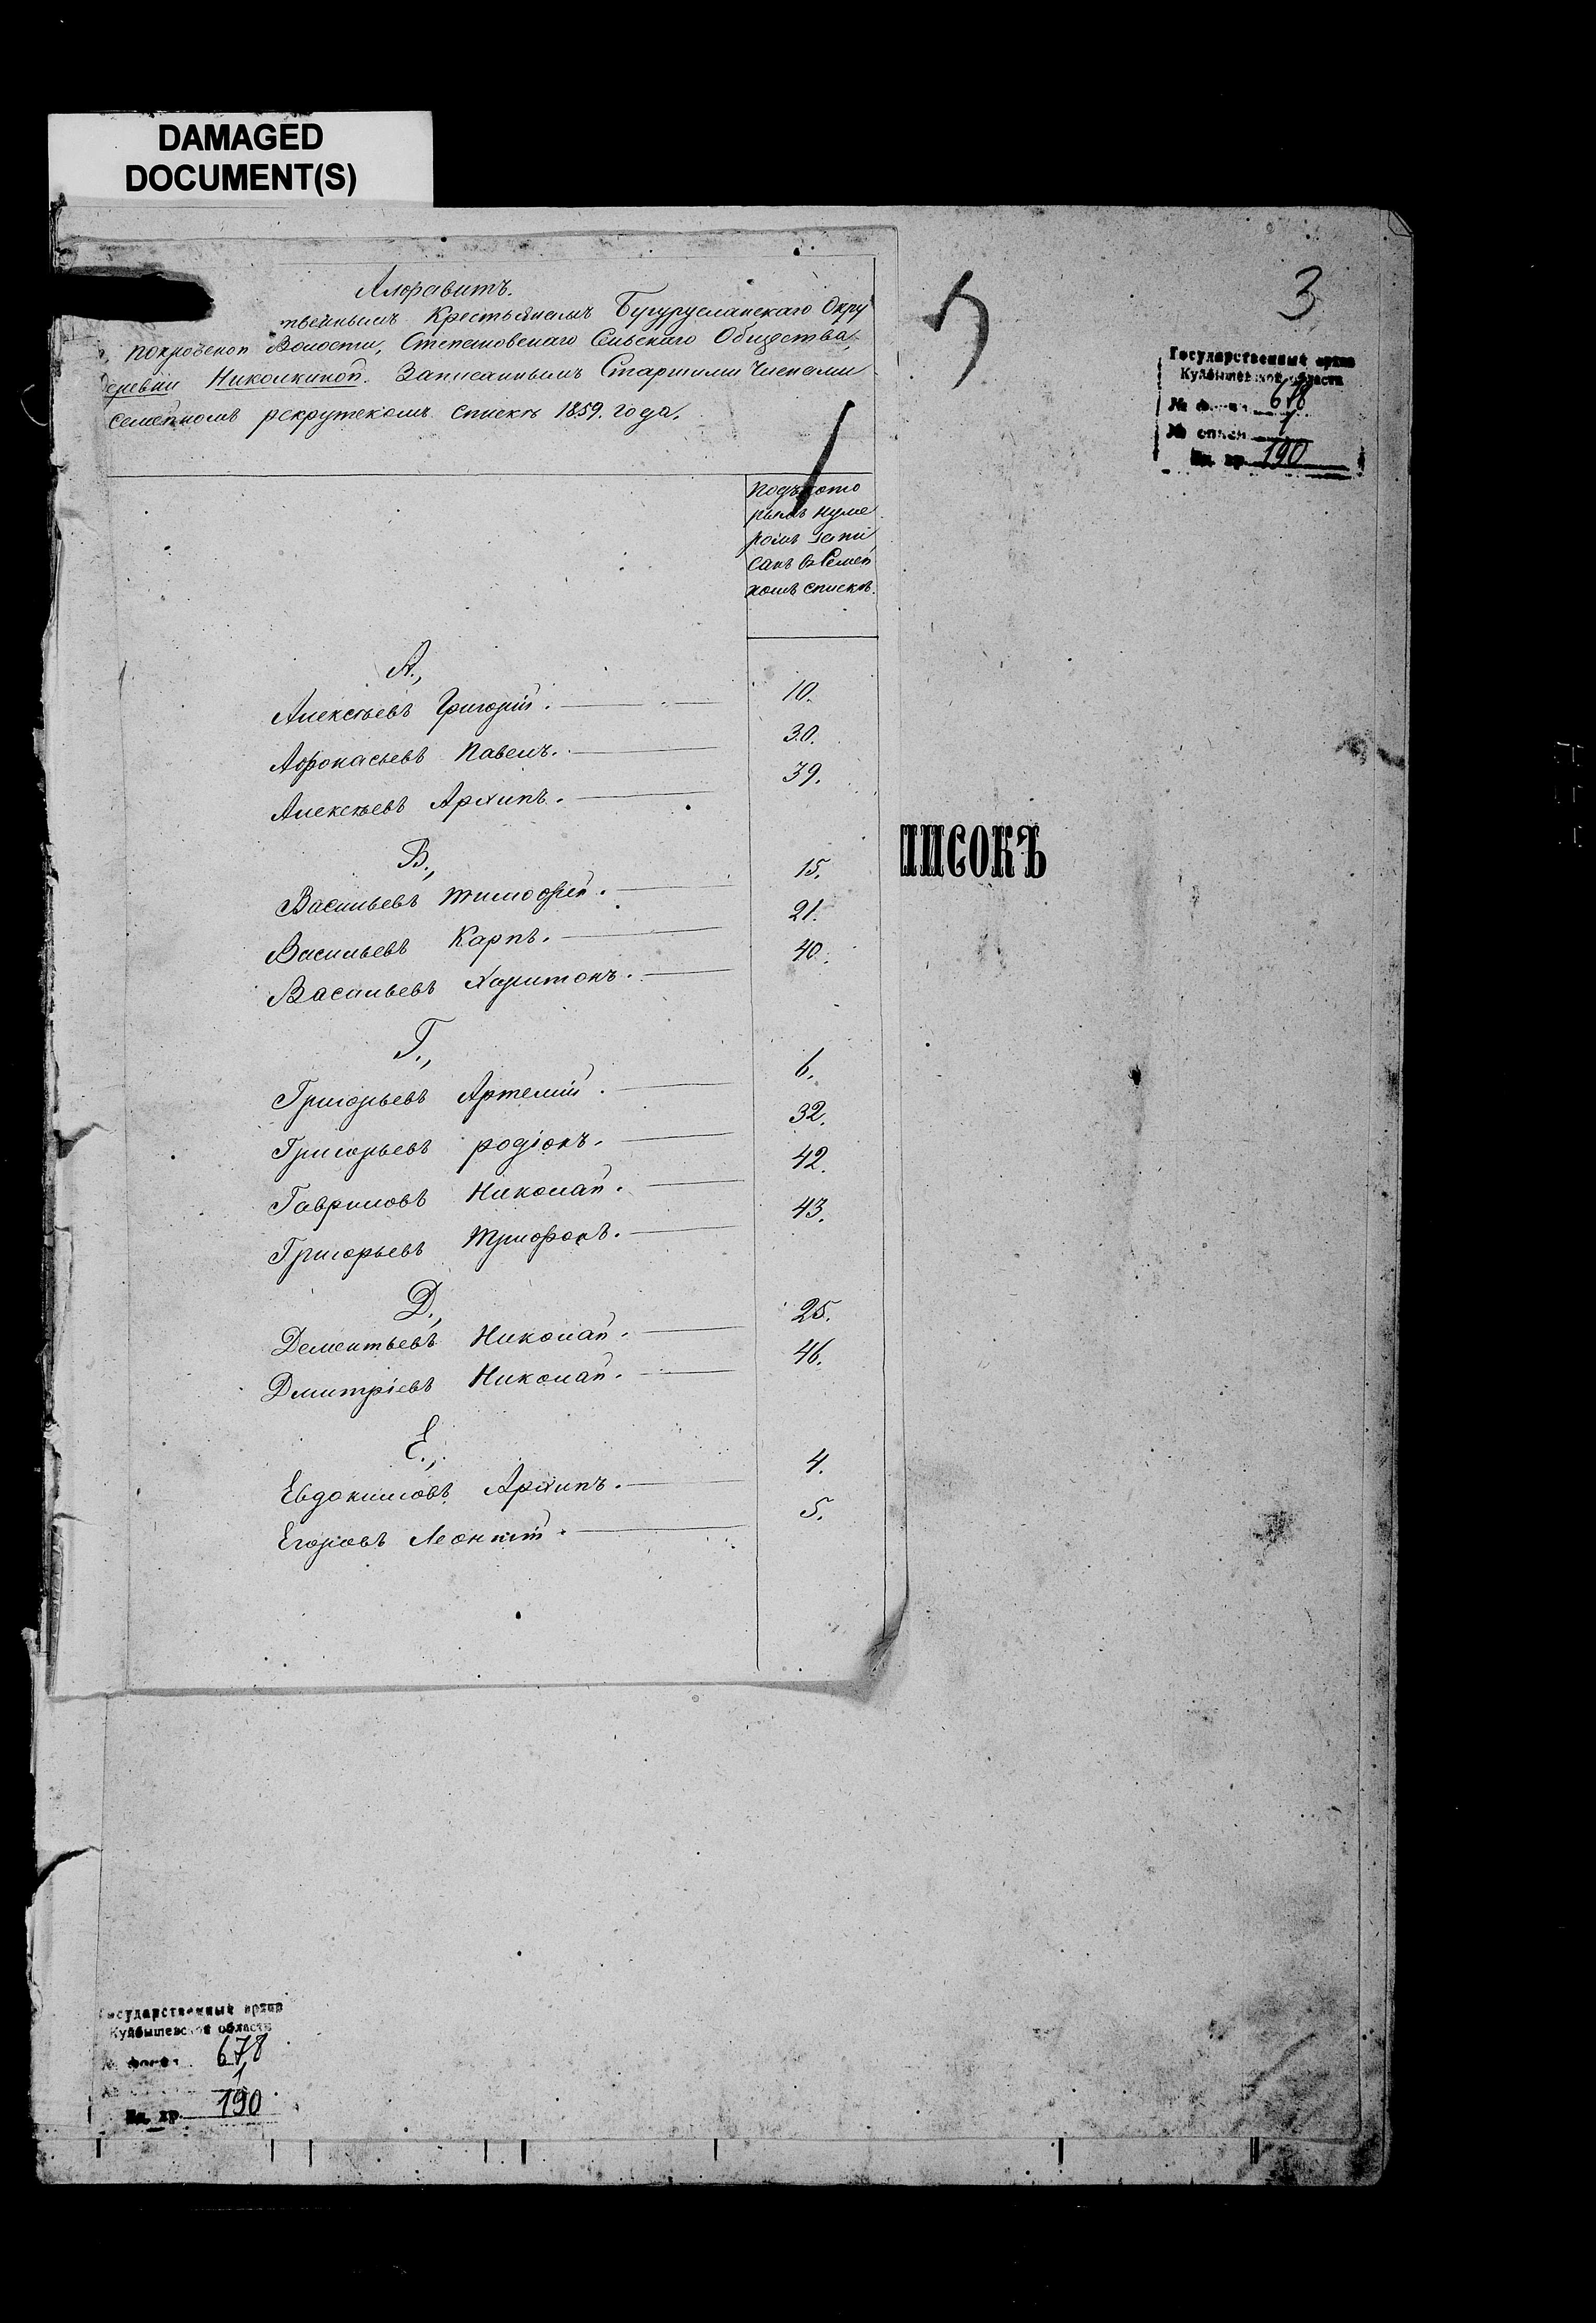 DAMAGED
DOCUMENT(S)
Алфавитъ.
твеннымъ Крестьянамъ Бугурусланскаго Окру
Покровской Волости, Степановскаго Сельскаго Общества,
деревни Николкиной. Записаннымъ Старшими Членами
семейномъ рекрутскомъ списке 1859. года.
Подъкото
рымъ нуме
ромъ запи
санъ въ Семей
номъ списке.
А.,
Алексеевъ Григорій. 10.
Афонасьевъ Павелъ. 30.
Алексеевъ Архипъ. 39.
В.,
Васильевъ Тимофей. 15.
Васильевъ Карпъ. 21.
Васильевъ Харитонъ. 40.
Г.,
Григорьевъ Артемій. 6.
Григорьевъ Родіонъ. 32.
Гавриловъ Николай. 42.
Григорьевъ Трифонъ. 43.
Д.,
Дементьевъ Николай. 25.
Дмитріевъ Николай. 46.
Е.,
Евдокимовъ Архипъ. 4.
Егоровъ Леонтій. 5.
3
Государственный архив
Куйбышевской области
№ фонда 678
№ описи 1
Ед. хр. 190
ПИСОКЪ
Государственный архив
Куйбышевской области
№ фонда 678
1
Ед. хр. 190